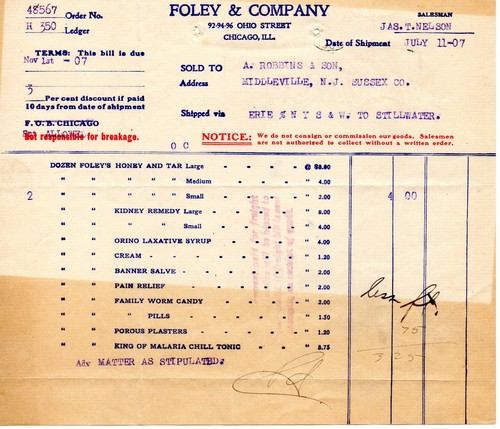 48567 Order No.
FOLEY & COMPANY
92-94-96 OHIO STREET
CHICAGO, ILL.
SALESMAN
JAS. T. NELSON
H 350 Ledger
Date of Shipment JULY 11-07
TERMS: This bill is due
Nov 1st - 07
SOLD TO A. ROBBINS & SON,
Address MIDDLEVILLE, N.J. SUSSEX CO.
3
Per cent discount if paid
10 days from date of shipment
Shipped via ERIE % N Y S & W. TO STILLWATER.
F. O. B. CHICAGO
ALLOWED
Not responsible for breakage.
O C
NOTICE: We do not consign or commission our goods. Salesmen
are not authorized to collect without a written order.
DOZEN FOLEY'S HONEY AND TAR Large - - - - @ $8.80
" " " " " Medium - - - - 4.00
2 " " " " " Small - - - - 2.00 4 00
" " KIDNEY REMEDY Large - - - - 8.00
" " " " Small - - - - 4.00
" " ORINO LAXATIVE SYRUP - - - - 4.00
" " CREAM - - - - 1.20
" " BANNER SALVE - - - - 2.00
" " PAIN RELIEF - - - - 2.00
" " FAMILY WORM CANDY - - - - 2.00
less
" " " PILLS - - - - 1.50
75
" " POROUS PLASTERS - - - - 1.20
" " KING OF MALARIA CHILL TONIC - - 3.75
3 25
Adv MATTER AS STIPULATED.